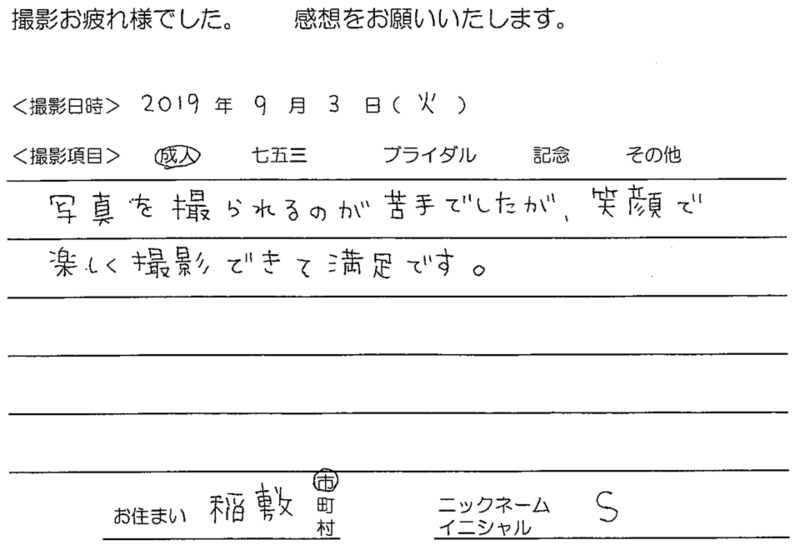 撮影お疲れ様でした。 感想をお願いいたします。
＜撮影日時＞ 2019 年 9 月 3 日（ 火 ）
＜撮影項目＞ 成人 七五三 ブライダル 記念 その他
写真を撮られるのが苦手でしたが、笑顔で
楽しく撮影できて満足です。
お住まい 稲敷 市
町
村
ニックネーム
イニシャル S